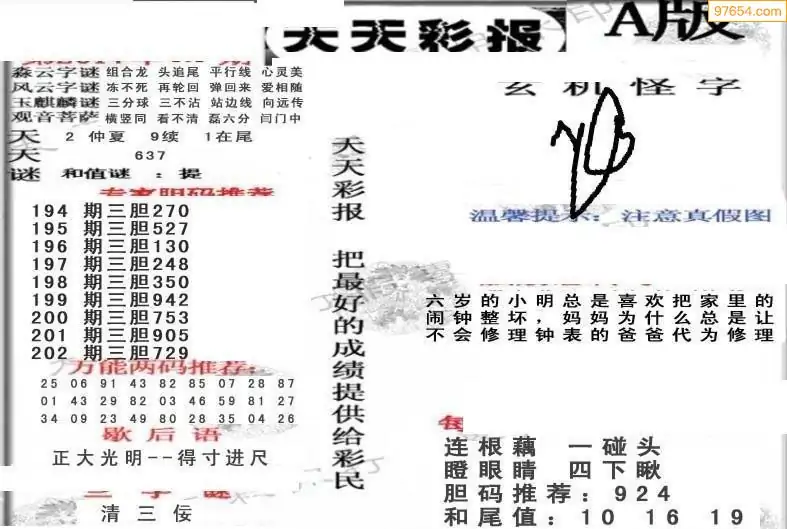 97654.com
天天彩报
A版
森云字谜 组合龙 头追尾 平行线 心灵美
风云字谜 冻不死 再轮回 弹回来 爱相随
玉麒麟谜 三分球 三不沾 站边线 向远传
观音菩萨 横竖同 看不清 磊六分 闫门中
天 2 仲夏 9续 1在尾
天 637
谜 和值谜 : 提
专家胆码推荐
194 期三胆270
195 期三胆527
196 期三胆130
197 期三胆248
198 期三胆350
199 期三胆942
200 期三胆753
201 期三胆905
202 期三胆729
万能两码推荐:
25 06 91 43 82 85 07 28 87
01 43 29 82 03 46 59 81 27
34 09 23 49 80 28 35 04 26
歇后语
正大光明--得寸进尺
三字谜
清三佞
天天彩报 把最好的成绩提供给彩民
玄机怪字
温馨提示: 注意真假图
六岁的小明总是喜欢把家里的
闹钟整坏,妈妈为什么总是让
不会修理钟表的爸爸代为修理
每
连根藕 一碰头
瞪眼睛 四下瞅
胆码推荐:924
和尾值: 10 16 19